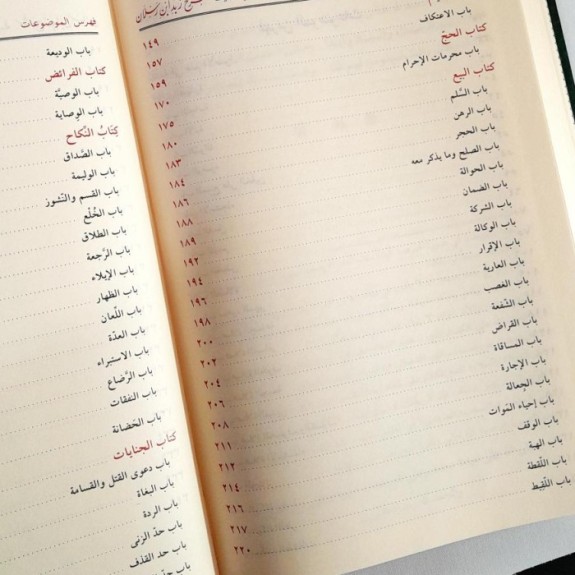 زبد ابن رسلان
١٤٩
باب الاعتكاف ١٥٧
كتاب الحجّ ١٥٩
باب محرمات الإحرام ١٧٠
كتاب البيع ١٧٥
باب السَّلم ١٨٠
باب الرهن ١٨٣
باب الحجر ١٨٤
باب الصلح وما يذكر معه ١٨٦
باب الحوالة ١٨٨
باب الضمان ١٨٩
باب الشركة ١٩٢
باب الوكالة ١٩٤
باب الإقرار ١٩٦
باب العارية ١٩٨
باب الغصب ٢٠٠
باب الشّفعة ٢٠٢
باب القراض ٢٠٤
باب المساقاة ٢٠٦
باب الإجارة ٢٠٨
باب الجعالة ٢١١
باب إحياء الموات ٢١٢
باب الوقف ٢١٤
باب الهبة ٢١٦
باب اللّقطة ٢١٧
باب اللّقيط ٢٢٠
فهرس الموضوعات
باب الوديعة
كتاب الفرائض
باب الوصيَّة
باب الوِصاية
كتابُ النِّكاح
باب الصَّداق
باب الوليمة
باب القسم والنّشوز
باب الخُلْع
باب الطلاق
باب الرَّجعة
باب الإيلاء
باب الظهار
باب اللّعان
باب العدّة
باب الاستبراء
باب الرَّضاع
باب النفقات
باب الحَضانة
كتاب الجنايات
باب دعوى القتل والقسامة
باب البغاة
باب الردة
باب حدّ الزنى
باب حد القذف
باب حدّ